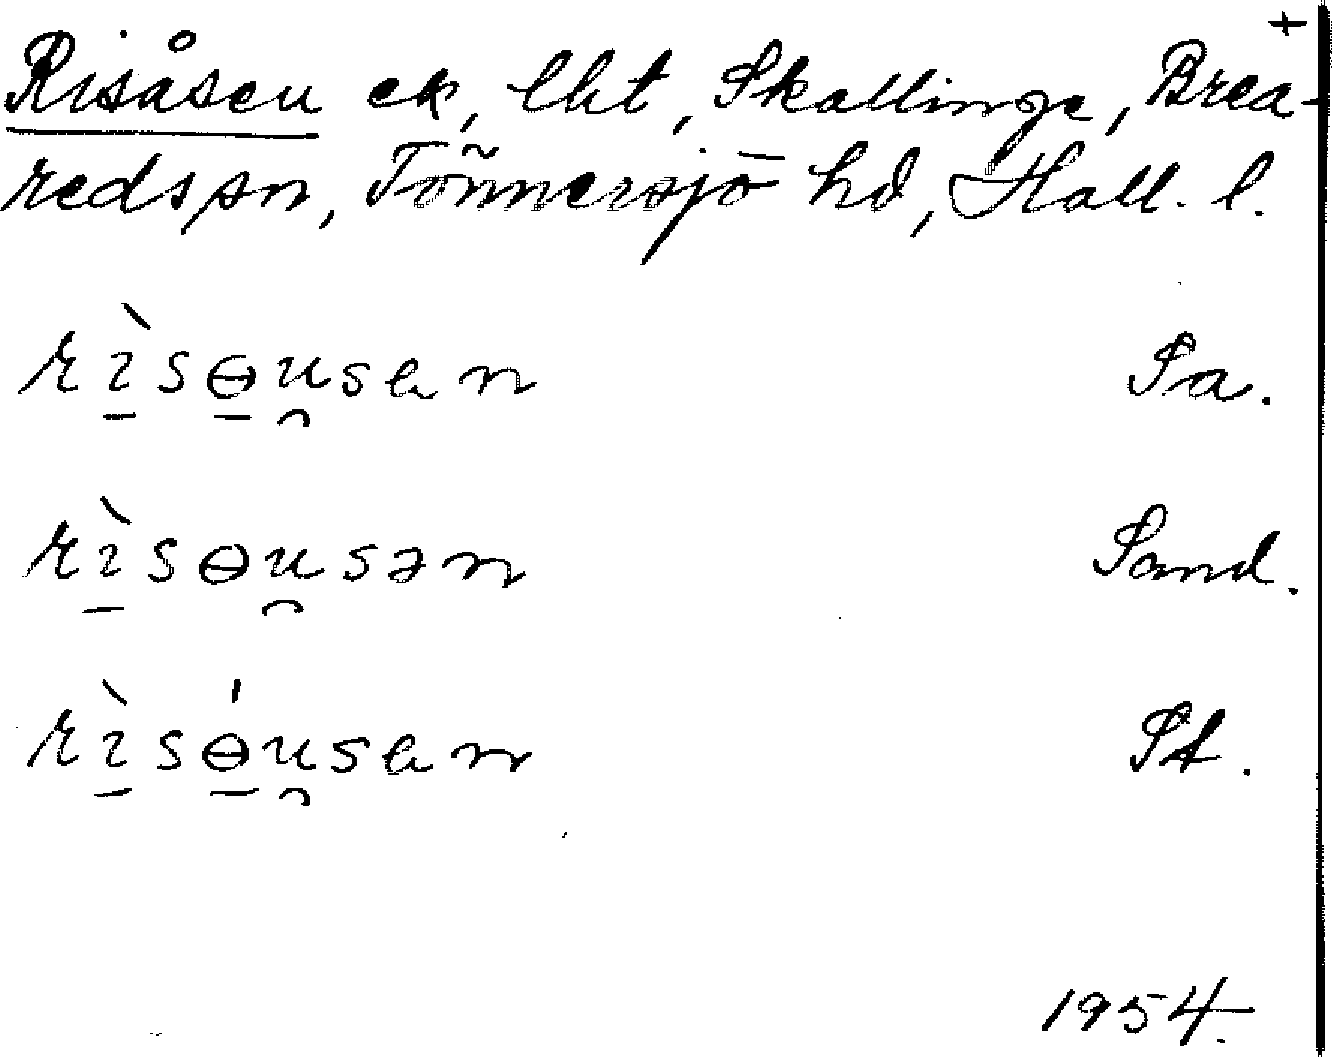 +
Risåsen ek, lht, Skallinge, Brea-
redssn, Tönnersjö hd, Hall. l.
rɩ̠̀sɵ̠u̯sen Sa.
rɩ̠̀sɵu̯sən Sand.
rɩ̠̀sɵ̠́u̯sen St.
1954.